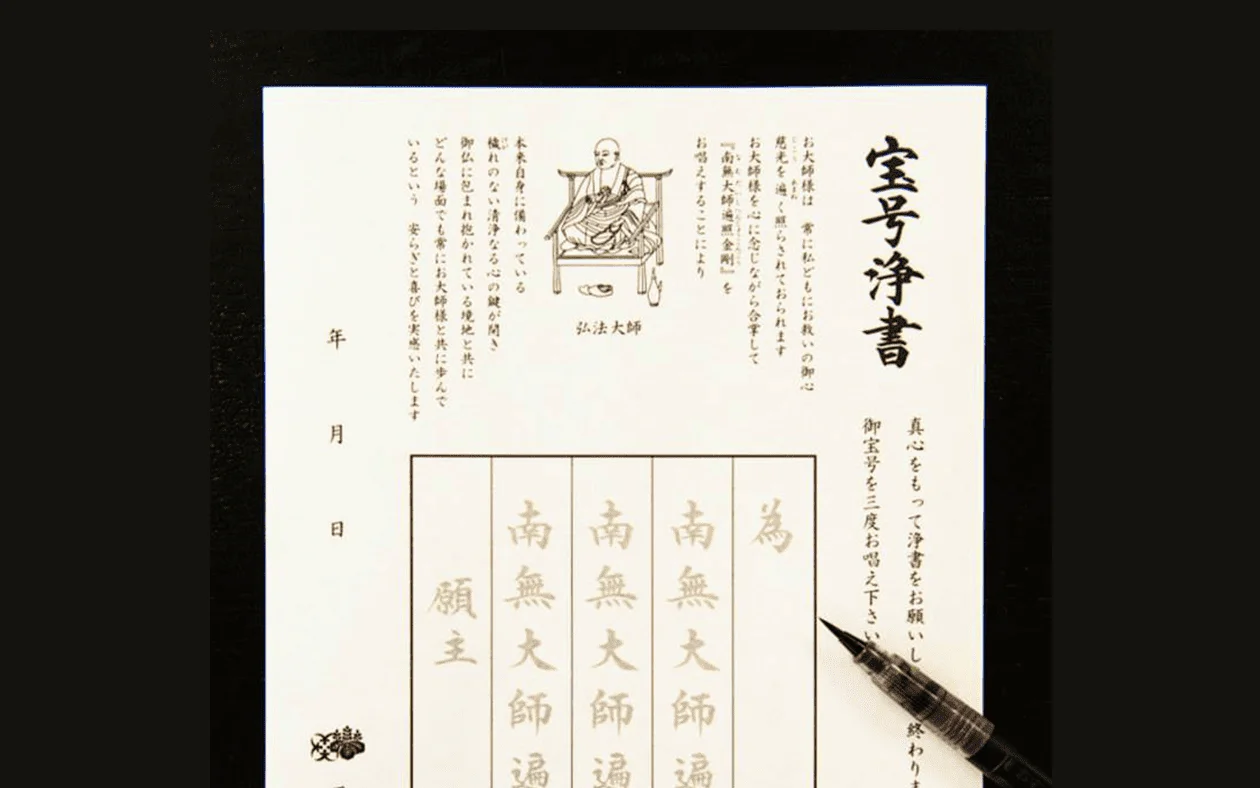 宝号浄書
真心をもって浄書をお願いし
終わりま
御宝号を三度お唱え下さい
お大師様は 常に私どもにお救いの御心
慈光を遍く照らされておられます
お大師様を心に念じながら合掌して
『南無大師遍照金剛』を
お唱えすることにより
弘法大師
本来自身に備わっている
穢れのない清浄なる心の鍵が開き
御仏に包まれ抱かれている境地と共に
どんな場面でも常にお大師様と共に歩んで
いるという 安らぎと喜びを実感いたします
為
南無大師遍
南無大師遍
南無大師遍
願主
年 月 日